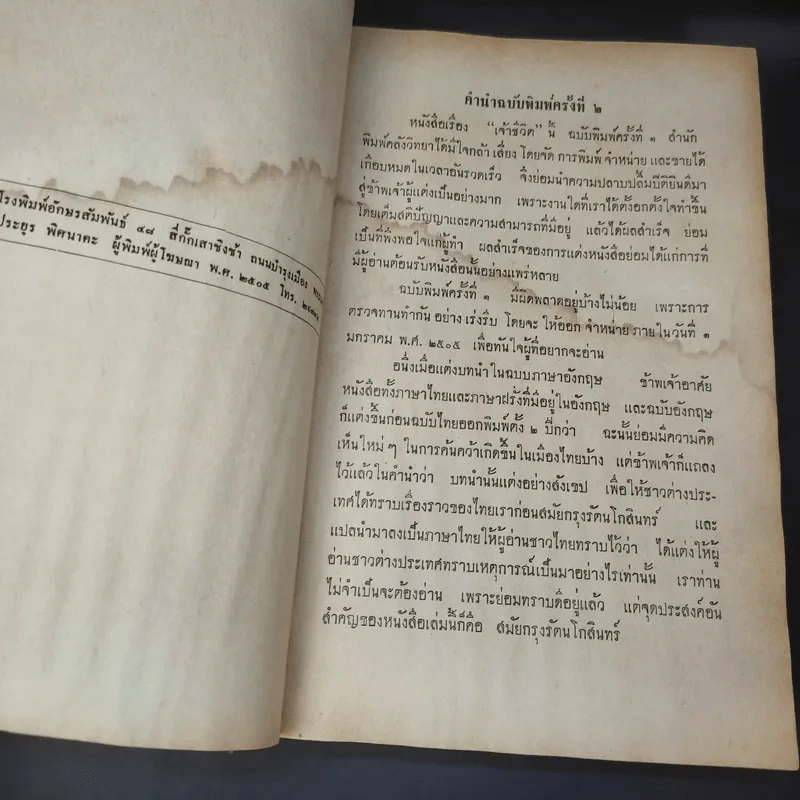 โรงพิมพ์อักษรสัมพันธ์ ๔๘ สี่กั๊กเสาชิงช้า ถนนบำรุงเมือง
ประยูร พิศนาคะ ผู้พิมพ์ผู้โฆษณา พ.ศ. ๒๕๐๕ โทร.
คำนำฉบับพิมพ์ครั้งที่ ๒
หนังสือเรื่อง "เจ้าชีวิต" นี้ ฉบับพิมพ์ครั้งที่ ๑ สำนัก
พิมพ์คลังวิทยาได้มีใจกล้า เสี่ยง โดยจัด การพิมพ์ จำหน่าย และขายได้
เกือบหมดในเวลาอันรวดเร็ว จึงย่อมนำความปลาบปลื้มปีติยินดีมา
สู่ข้าพเจ้าผู้แต่งเป็นอย่างมาก เพราะงานใดที่เราได้ตั้งอกตั้งใจทำขึ้น
โดยเต็มสติปัญญาและความสามารถที่มีอยู่ แล้วได้ผลสำเร็จ ย่อม
เป็นที่พึงพอใจแก่ผู้ทำ ผลสำเร็จของการแต่งหนังสือย่อมได้แก่การที่
มีผู้อ่านต้อนรับหนังสือนั้นอย่างแพร่หลาย
ฉบับพิมพ์ครั้งที่ ๑ มีผิดพลาดอยู่บ้างไม่น้อย เพราะการ
ตรวจทานทำกัน อย่าง เร่งรีบ โดยจะ ให้ออก จำหน่าย ภายในวันที่ ๑
มกราคม พ.ศ. ๒๕๐๕ เพื่อทันใจผู้ที่อยากจะอ่าน
อนึ่งเมื่อแต่งบทนำในฉบบภาษาอังกฤษ ข้าพเจ้าอาศัย
หนังสือทั้งภาษาไทยและภาษาฝรั่งที่มีอยู่ในอังกฤษ และฉบับอังกฤษ
ก็แต่งขึ้นก่อนฉบับไทยออกพิมพ์ตั้ง ๒ ปีกว่า ฉะนั้นย่อมมีความคิด
เห็นใหม่ ๆ ในการค้นคว้าเกิดขึ้นในเมืองไทยบ้าง แต่ข้าพเจ้าก็แถลง
ไว้แล้วในคำนำว่า บทนำนั้นแต่งอย่างสังเขป เพื่อให้ชาวต่างประ-
เทศได้ทราบเรื่องราวของไทยเราก่อนสมัยกรุงรัตนโกสินทร์ และ
แปลนำมาลงเป็นภาษาไทยให้ผู้อ่านชาวไทยทราบไว้ว่า ได้แต่งให้ผู้
อ่านชาวต่างประเทศทราบเหตุการณ์เป็นมาอย่างไรเท่านั้น เราท่าน
ไม่จำเป็นจะต้องอ่าน เพราะย่อมทราบดีอยู่แล้ว แต่จุดประสงค์อัน
สำคัญของหนังสือเล่มนี้ก็คือ สมัยกรุงรัตนโกสินทร์